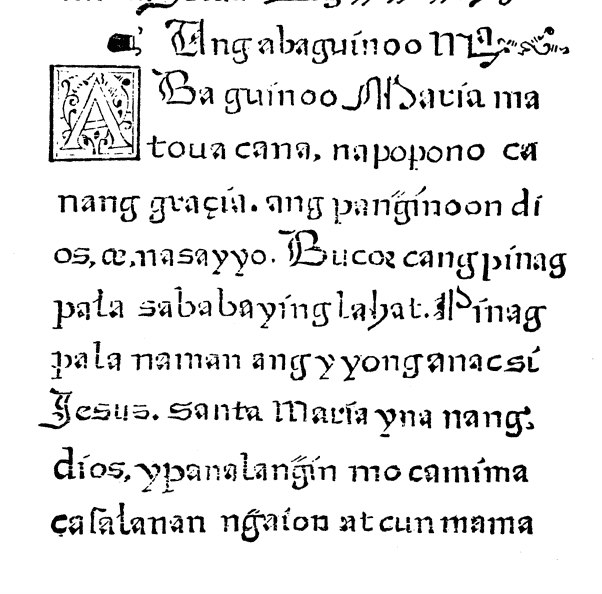 Ang abaguinoo Mᵃ
ABa guinoo Maria ma
toua cana, napopono ca
nang graçia. ang pan͠ginoon di
os, æ, nasayyo. Bucor cang pinag
pala sababaying lahat. Pinag
pala naman ang yyong anac si
Jesus. santa Maria yna nang,
dios, ypanalan͠gin mo camima
çaſalanan n͠gaion at cun mama